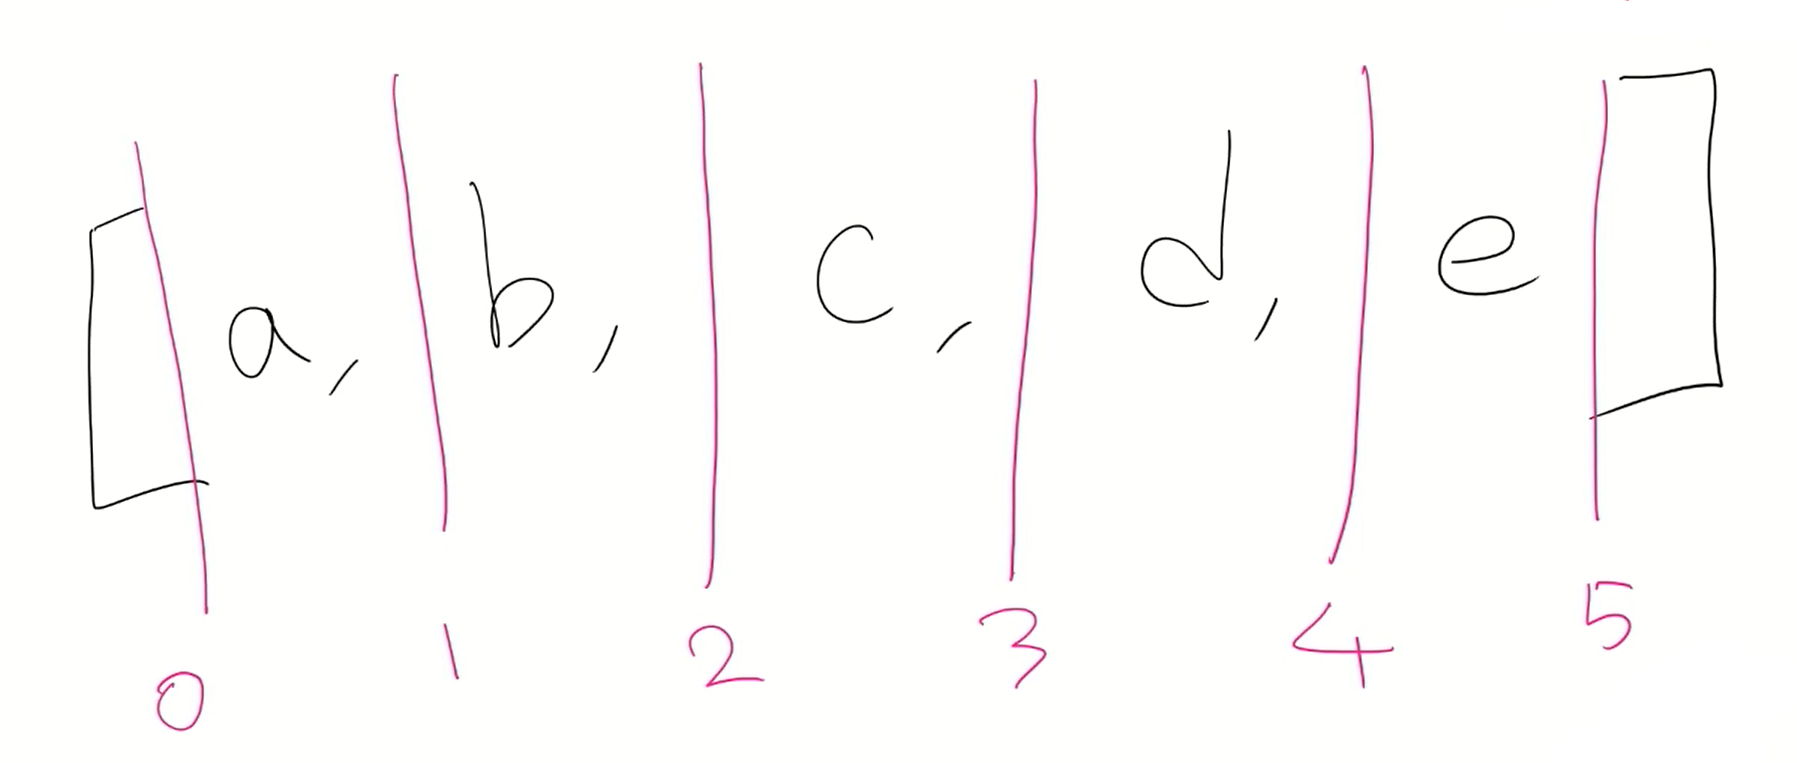 [a, b, c, d, e]
0 1 2 3 4 5